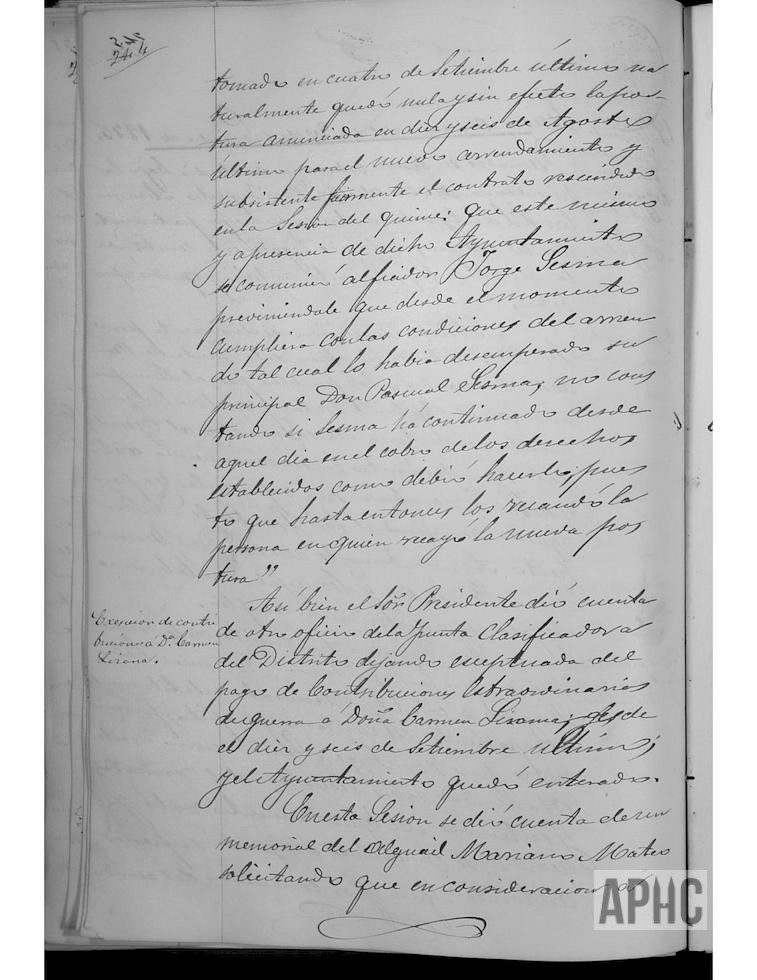 tomado en cuatro de Setiembre último na
turalmente quedó nula y sin efecto la pos-
tura anunciada en diez y seis de Agosto
ultimo para el nuevo arrendamiento y
subsistente el contrato rescindido
en la Sesion del quince: que este mismo
y a presencia de dicho Ayuntamiento
se conminó al fiador Jorge Sesma
previniendole que desde el momento
cumpliera con las condiciones del arren
dó tal cual lo habia desempeñado su
principal Don Pascual Sesma; no cons
tando si Sesma há continuado desde
aquel dia en el cobro de los derechos
establecidos como debió hacerlo, pues
to que hasta entonces los recaudó la
persona en quien recayó la nueva pos
tura"
Exencion de contri
buciones á Dª Carmen
Lizana.
Asi bien el Sor Presidente dió cuenta
de otro oficio de la Junta Clasificadora
del Distrito dejando esceptuada del
pago de Contribuciones Estraordinarias
de guerra á Doña Carmen Lizana; desde
el diez y seis de Setiembre ultimo;
y el Ayuntamiento quedó enterado.
En esta Sesion se dió cuenta de un
memorial del Alguacil Mariano Mateo
solicitando que en consideracion á
APHC